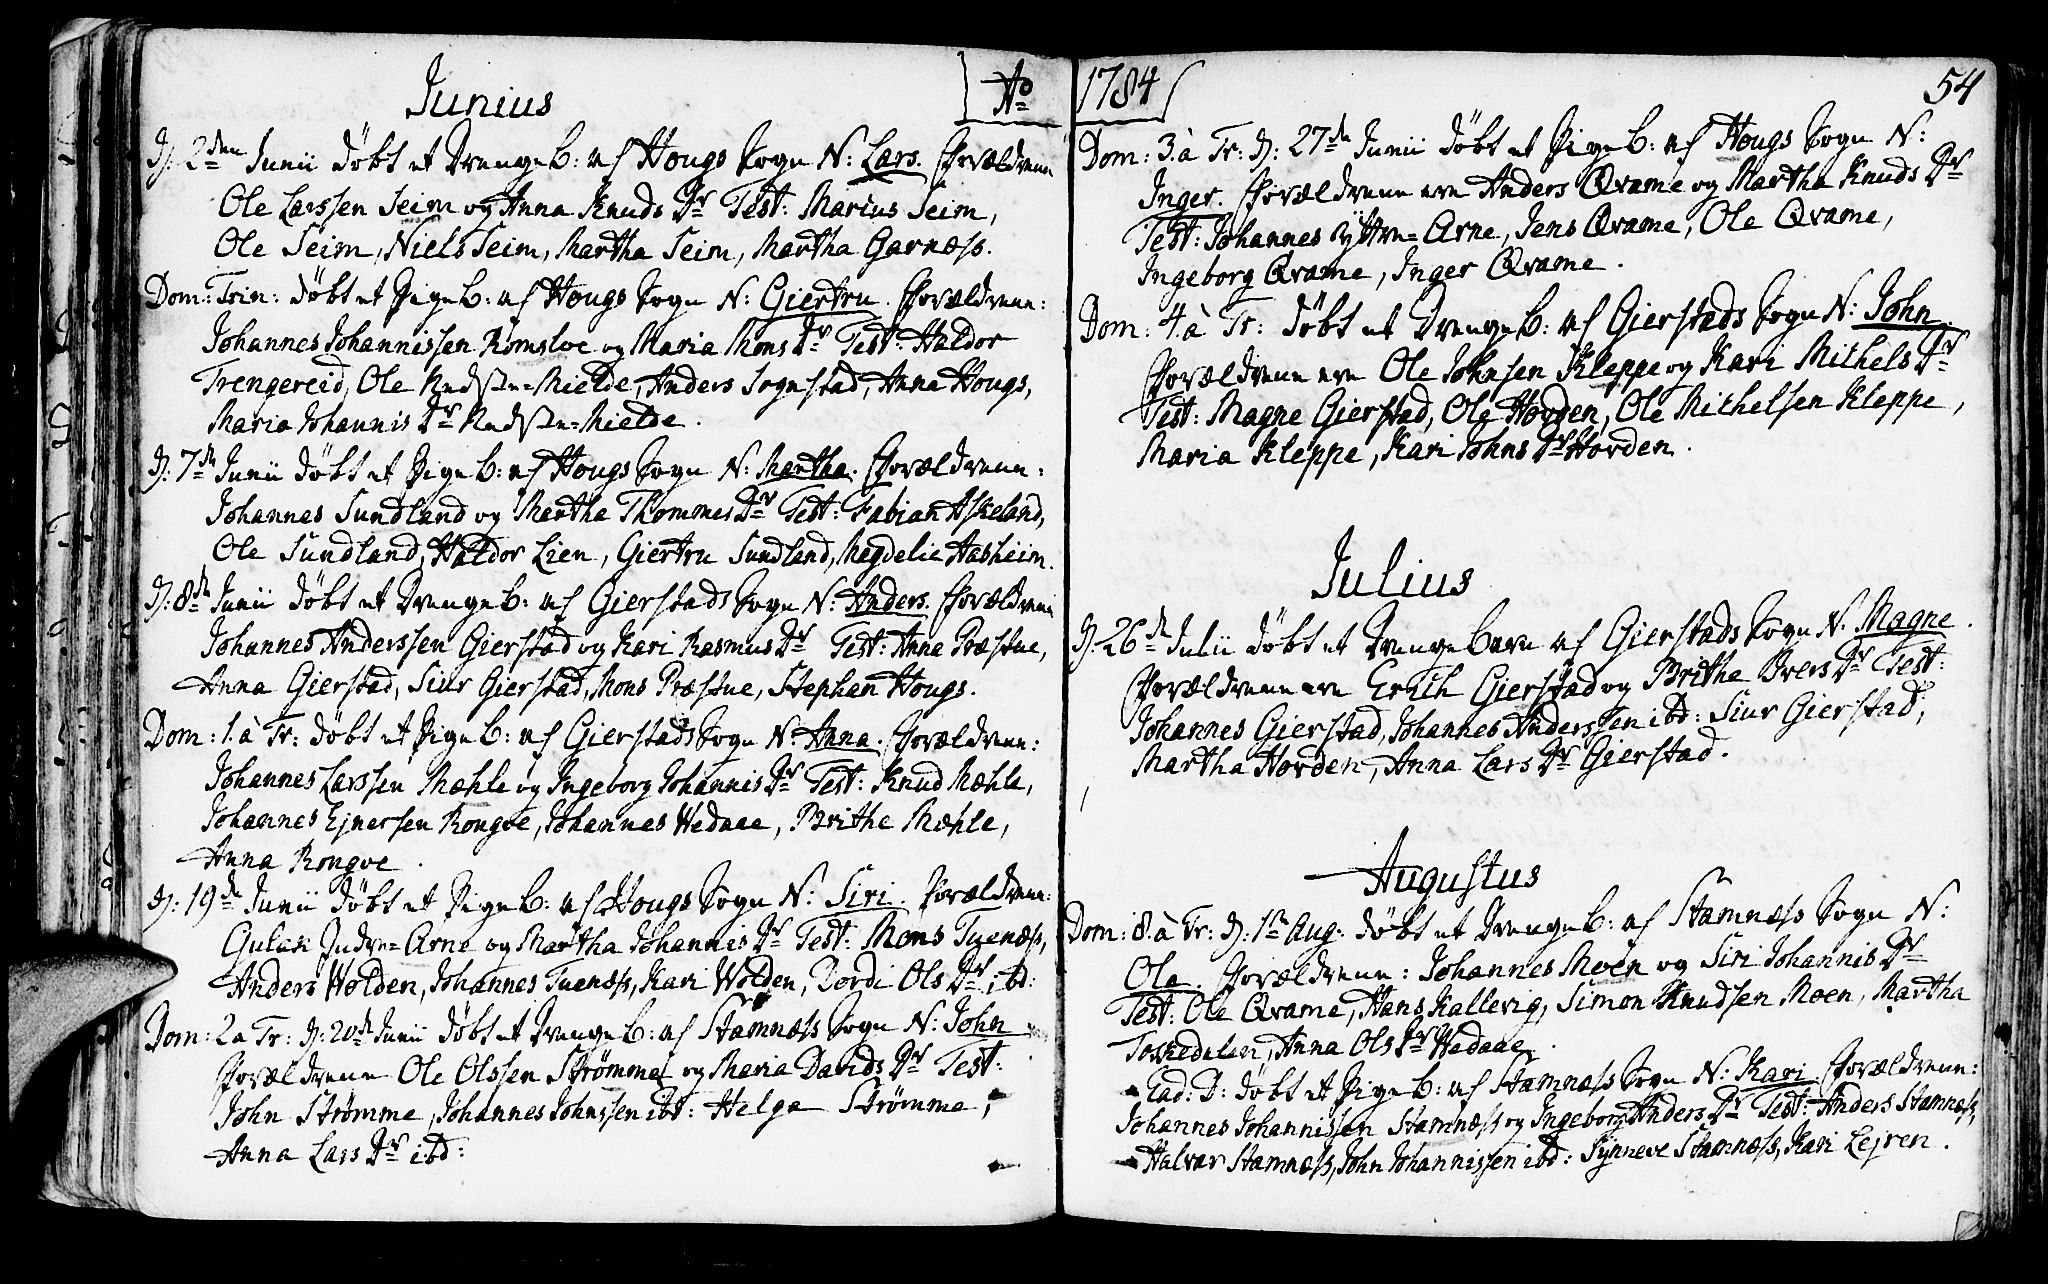 Junius
Ao
D: 2den Junii døbt et Drenge B: af Hougs Sogn N: Lars. Forældrene
Ole Larssen Seim og Anna Knuds Dr Test: Marius Seim,
Ole Seim, Niels Seim, Martha Seim, Martha Garnæss.
Dom: Trin: døbt et Pige B: af Hougs Sogn N: Giertru. Forældrene:
Johannes Johannissen Romsloe og Maria Mons Dr Test: Haldor
Trengereid, Ole Nedste=Mielde, Anders Sognstad, Anna Hougs,
Maria Johannis Dr Nedste=Mielde.
D: 7de Junii døbt et Pige B: af Hougs Sogn N: Martha. Forældrene:
Johannes Sundland og Martha Thommes Dr Test: Fabian Askeland,
Ole Sundland, Haldor Lien, Giertru Sundland, Magdelie Aasheim.
D: 8de Junii døbt et Drenge B: af Gierstads Sogn N: Anders. Forældrene
Johannes Anderssen Gierstad og Kari Rasmus Dr Test: Anna Præstue,
Anna Gierstad, Siur Gierstad, Mons Præstue, Stephan Hougs.
Dom: 1. à Tr: døbt et Pige B: af Gierstads Sogn N: Anna. Forældrene:
Johannes Larssen Mæhle og Ingeborg Johannis Dr Test: Knud Mæhle,
Johannes Ejnersen Rongve, Johannes Wedaae, Brithe Mæhle,
Anna Rongve.
D: 19de Junii døbt et Pige B: af Hougs Sogn N: Siri. Forældrene:
Gulak Indre=Arne og Martha Johannis Dr Test: Mons Tuenæss,
Anders Wolden, Johannes Tuenæss, Kari Wolden, Bordi Ols Dr ibd:
Dom: 2. a Tr: D: 20de Junii døbt et Drenge B: af Stamnæss Sogn N: John
Forældrene Ole Olssen Strømme og Maria Davids Dr Test:
John Strømme, Johannes Johnssen ibd: Helge Strømme,
Anna Lars Dr ibd:
1784
54
Dom: 3. à Tr: D: 27de Junii døbt et Pige B: af Hougs Sogn N:
Inger. Forældrene ere Anders Qvame og Martha Knuds Dr
Test: Johannes Yttre=Arne, Jens Qvame, Ole Qvame,
Ingeborg Qvame, Inger Qvame.
Dom: 4. à Tr: døbt et Drenge B: af Gierstads Sogn N: John.
Forældrene ere Ole Johnsen Kleppe og Kari Mithels Dr
Test: Magne Gierstad, Ole Horden, Ole Mithelsen Kleppe,
Maria Kleppe, Kari Johns Dr Horden.
Julius
D: 26de Julii døbt et Drenge Barn af Gierstads Sogn N: Magne.
Forældrene ere Erich Gierstad og Brithe Ivers Dr Test:
Johannes Gierstad, Johannes Anderssen ibd: Siur Gierstad,
Martha Horden, Anna Lars Dr Gierstad.
Augustus
Dom: 8. à Tr: D: 1ste Aug: døbt et Drenge B: af Stamnæss Sogn N:
Ole. Forældrene: Johannes Moen og Siri Johannis Dr
Test: Ole Qvame, Hans Kallevig, Simon Knudsen Moen, Martha
Toskedalen, Anna Ols Dr Wedaae.
Ead: D: døbt et Pige B: af Stamnæss Sogn N: Kari. Forældrene:
Johannes Johannissen Stamnæss og Ingeborg Anders Dr Test: Anders Stamnæss,
Halvar Stamnæss, John Johannissen ibd: Synneve Stamnæss, Kari Lejren.